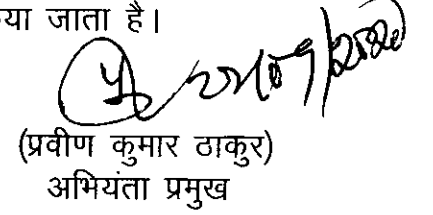 या जाता है।
(प्रवीण कुमार ठाकुर)
अभियंता प्रमुख